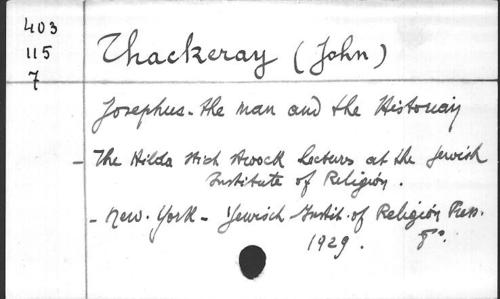 403
115
7
Thackeray (John)
Josephus - the man and the Historian
- The Hilda Stich Stroock Lectures at the Jewish
Institute of Religion.
- New-York - Jewish Instit. of Religion Press.
1929. 8°.